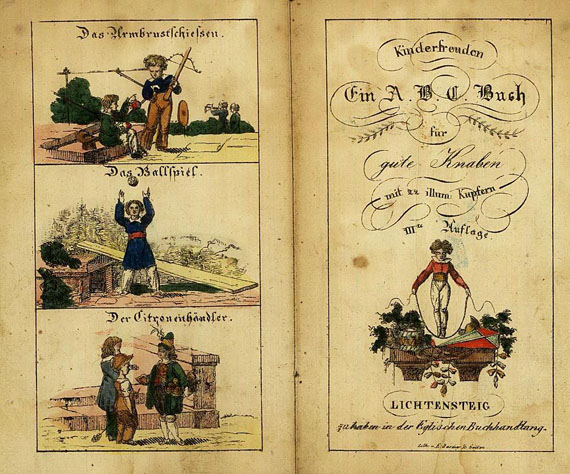 Das Armbrustschiessen.
Das Ballspiel.
Der Citronenhändler.
Kinderfreuden
Ein A. B. C. Buch
für
gute Knaben
mit 22 illum. Kupfern
IIIte Auflage.
LICHTENSTEIG
zu haben in der Eglischen Buchhandlung.